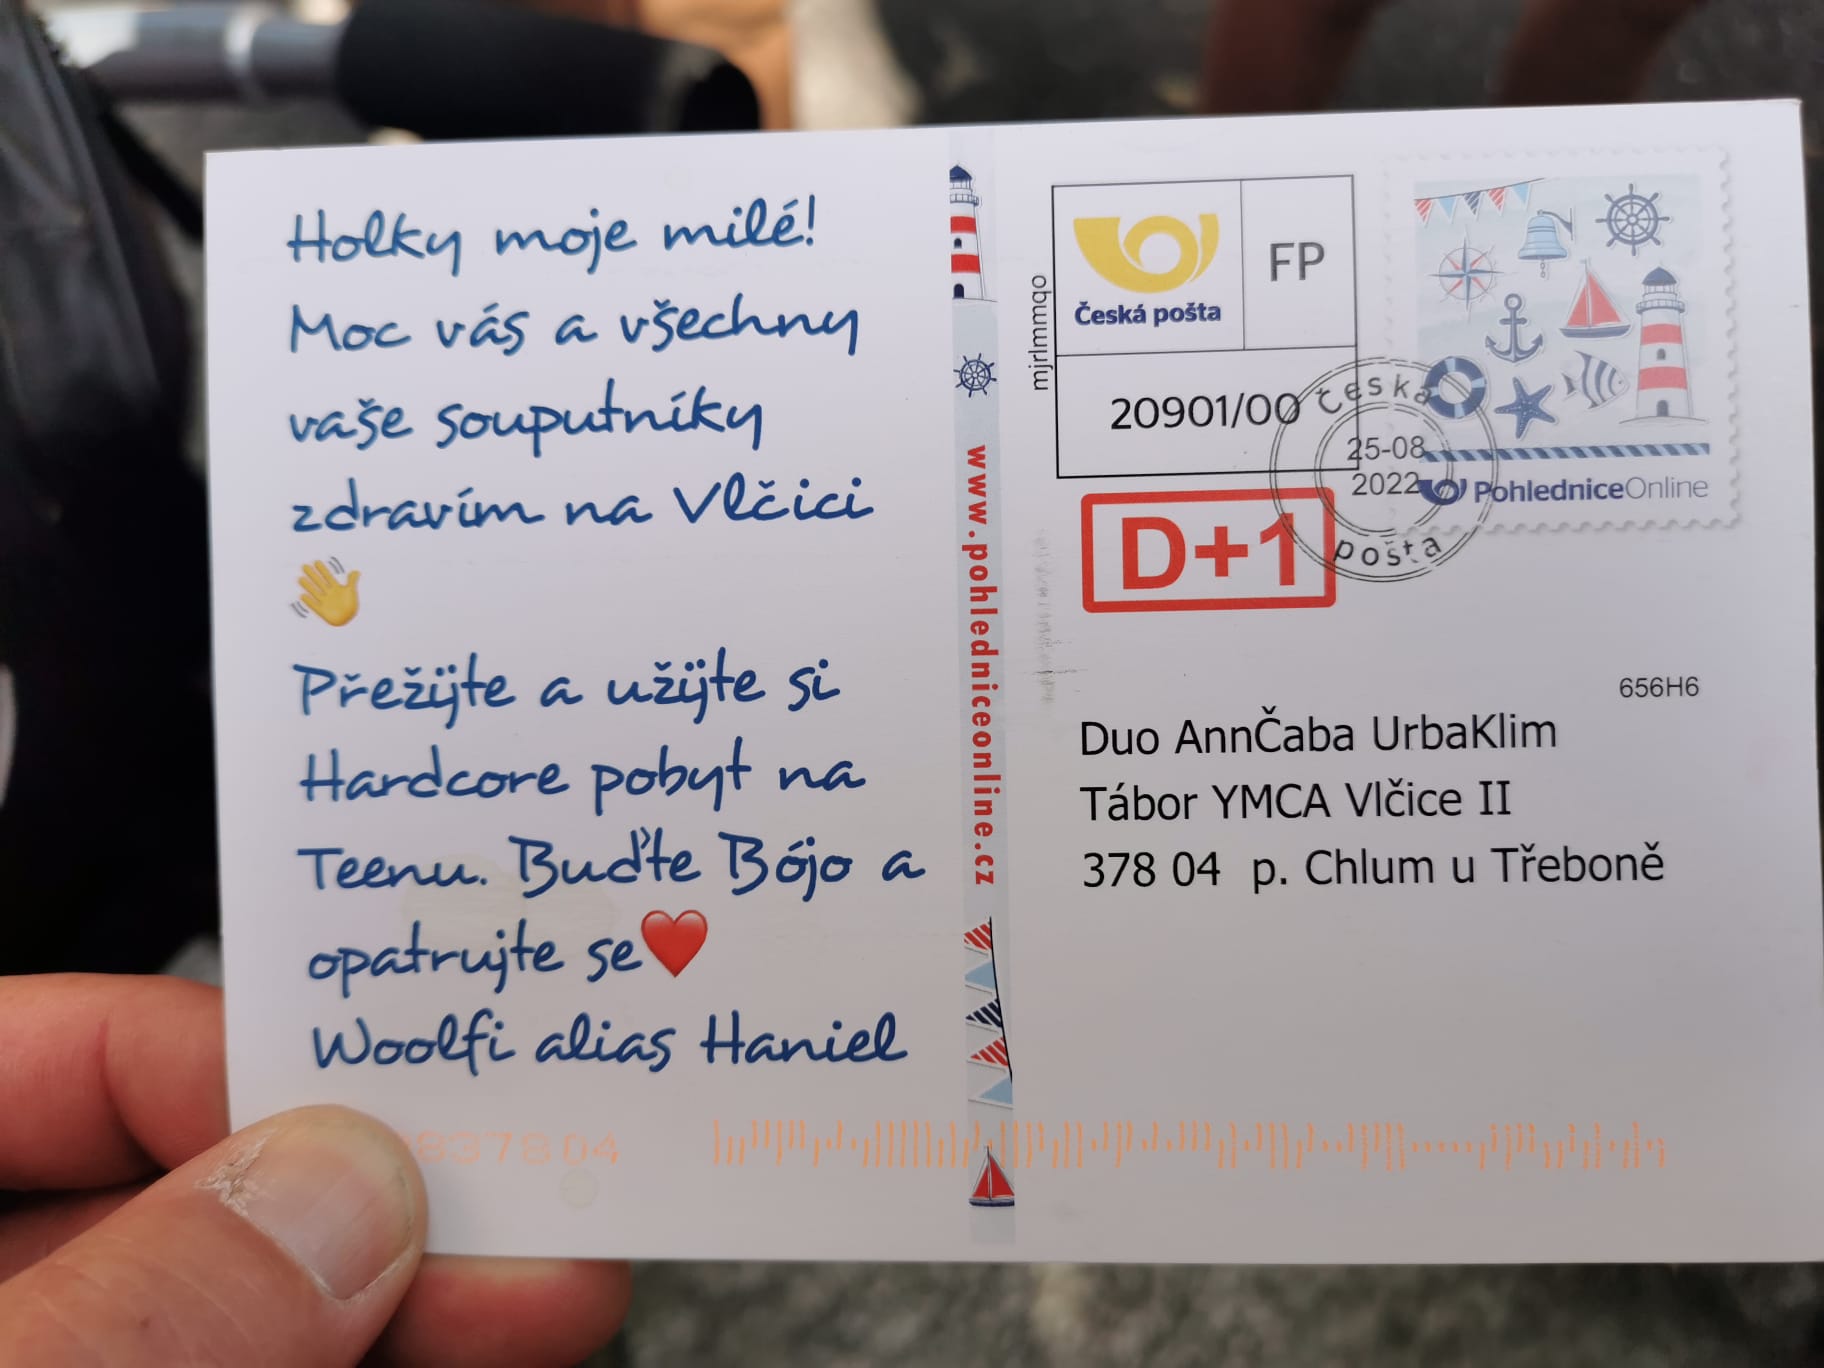 Holky moje milé!
Moc vás a všechny
vaše souputníky
zdravím na Vlčici
👋
Přežijte a užijte si
Hardcore pobyt na
Teenu. Buďte Bójo a
opatrujte se❤️
Woolfi alias Haniel
837804
www.pohledniceonline.cz
mjrlmmqo
Česká pošta
FP
20901/00
D+1
česká
25-08
2022
pošta
PohledniceOnline
656H6
Duo AnnČaba UrbaKlim
Tábor YMCA Vlčice II
378 04 p. Chlum u Třeboně